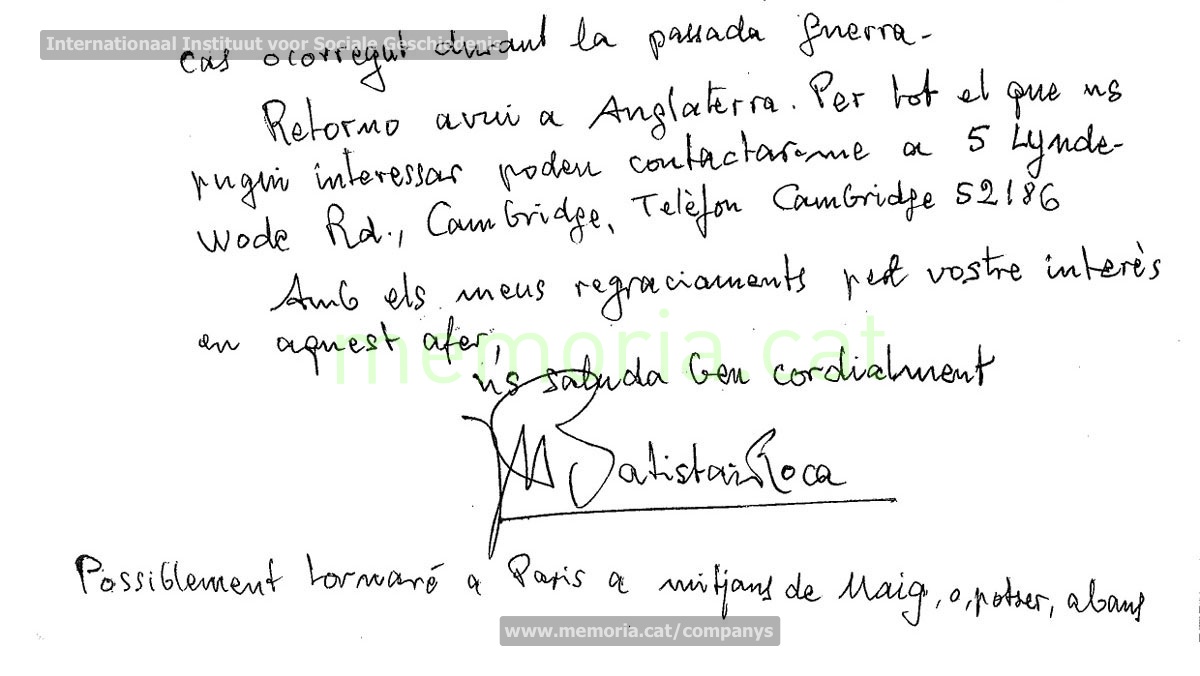 Internationaal Instituut voor Sociale Geschiedenis
cas ocorregut durant la passada guerra.
Retorno avui a Anglaterra. Per tot el que us
pugui interessar podeu contactar-me a 5 Lynde-
wode Rd., Cambridge, Telèfon Cambridge 52186
Amb els meus regraciaments pel vostre interès
en aquest afer,
memoria.cat
us saluda ben cordialment
JM Batista i Roca
Possiblement tornaré a Paris a mitjans de Maig, o, potser, abans
www.memoria.cat/companys